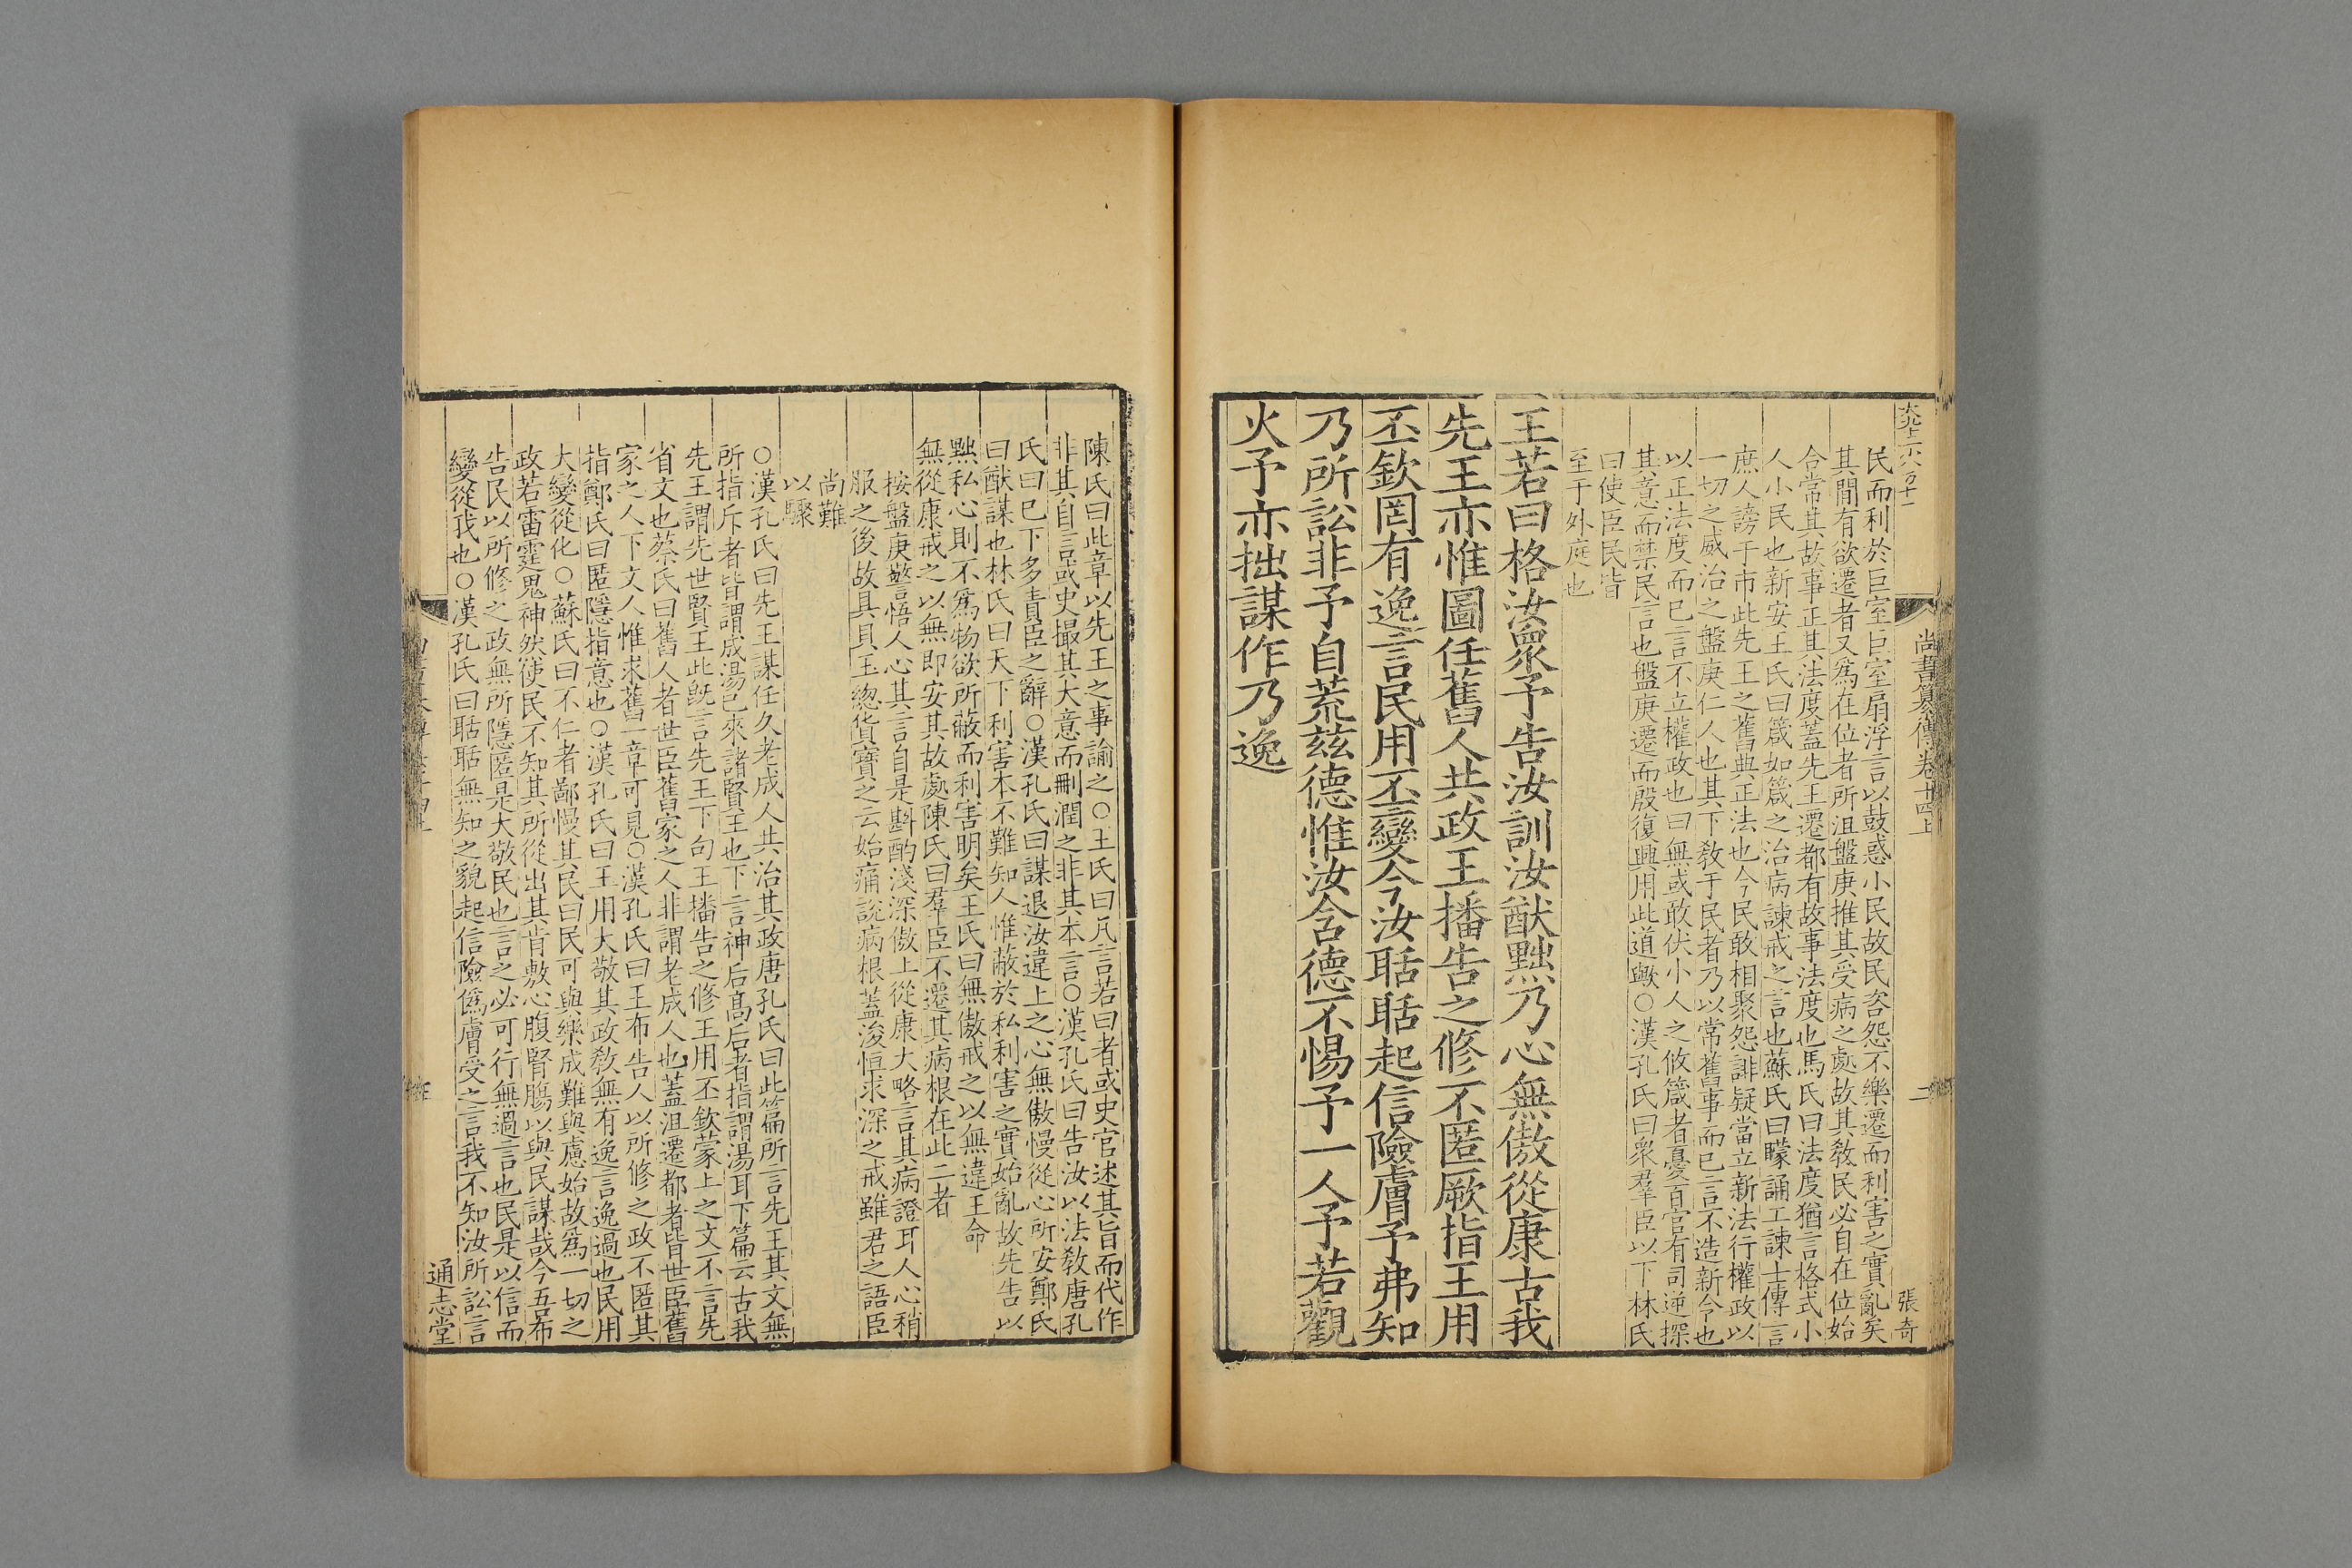 尚書纂傳卷十四上
二
張奇
民而利於巨室巨室扇浮言以鼓惑小民故民咨怨不樂遷而利害之實亂矣
其間有欲遷者又爲在位者所沮盤庚推其受病之處故其敎民必自在位始
合常其故事正其法度蓋先王遷都有故事法度也馬氏曰法度猶言格式小
人小民也新安王氏曰箴如箴之治病諫戒之言也蘇氏曰矇誦工諫士傳言
庶人謗于市此先王之舊典正法也今民敢相聚怨誹疑當立新法行權政以
一切之威治之盤庚仁人也其下敎于民者乃以常舊事而已言不造新令也
以正法度而已言不立權政也曰無或敢伏小人之攸箴者憂百官有司逆探
其意而禁民言也盤庚遷而殷復興用此道歟○漢孔氏曰衆羣臣以下林氏
曰使臣民皆
至于外庭也
王若曰格汝衆予告汝訓汝猷黜乃心無傲從康古我
先王亦惟圖任舊人共政王播告之修不匿厥指王用
丕欽罔有逸言民用丕變今汝聒聒起信險膚予弗知
乃所訟非予自荒茲德惟汝含德不惕予一人予若觀
火予亦拙謀作乃逸
陳氏曰此章以先王之事諭之○王氏曰凡言若曰者或史官述其旨而代作
非其自言或史撮其大意而刪潤之非其本言○漢孔氏曰告汝以法敎唐孔
氏曰已下多責臣之辭○漢孔氏曰謀退汝違上之心無傲慢從心所安鄭氏
曰猷謀也林氏曰天下利害本不難知人惟蔽於私利害之實始亂故先告以
黜私心則不爲物欲所蔽而利害明矣王氏曰無傲戒之以無違王命
無從康戒之以無即安其故處陳氏曰羣臣不遷其病根在此二者
按盤庚警悟人心其言自是斟酌淺深傲上從康大略言其病證耳人心稍
服之後故具貝玉緫貨寶之云始痛說病根蓋浚恒求深之戒雖君之語臣
尚難
以驟
○漢孔氏曰先王謀任久老成人共治其政唐孔氏曰此篇所言先王其文無
所指斥者皆謂成湯已來諸賢王也下言神后高后者指謂湯耳下篇云古我
先王謂先世賢王此旣言先王下句王播告之修王用丕欽蒙上之文不言先
省文也蔡氏曰舊人者世臣舊家之人非謂老成人也蓋沮遷都者皆世臣舊
家之人下文人惟求舊一章可見○漢孔氏曰王布告人以所修之政不匿其
指鄭氏曰匿隱指意也○漢孔氏曰王用大敬其政敎無有逸言逸過也民用
大變從化○蘇氏曰不仁者鄙慢其民曰民可與樂成難與慮始故爲一切之
政若雷霆鬼神然使民不知其所從出其肯敷心腹腎腸以與民謀哉今吾布
告民以所修之政無所隱匿是大敬民也言之必可行無過言也民是以信而
變從我也○漢孔氏曰聒聒無知之貌起信險僞膚受之言我不知汝所訟言
通志堂